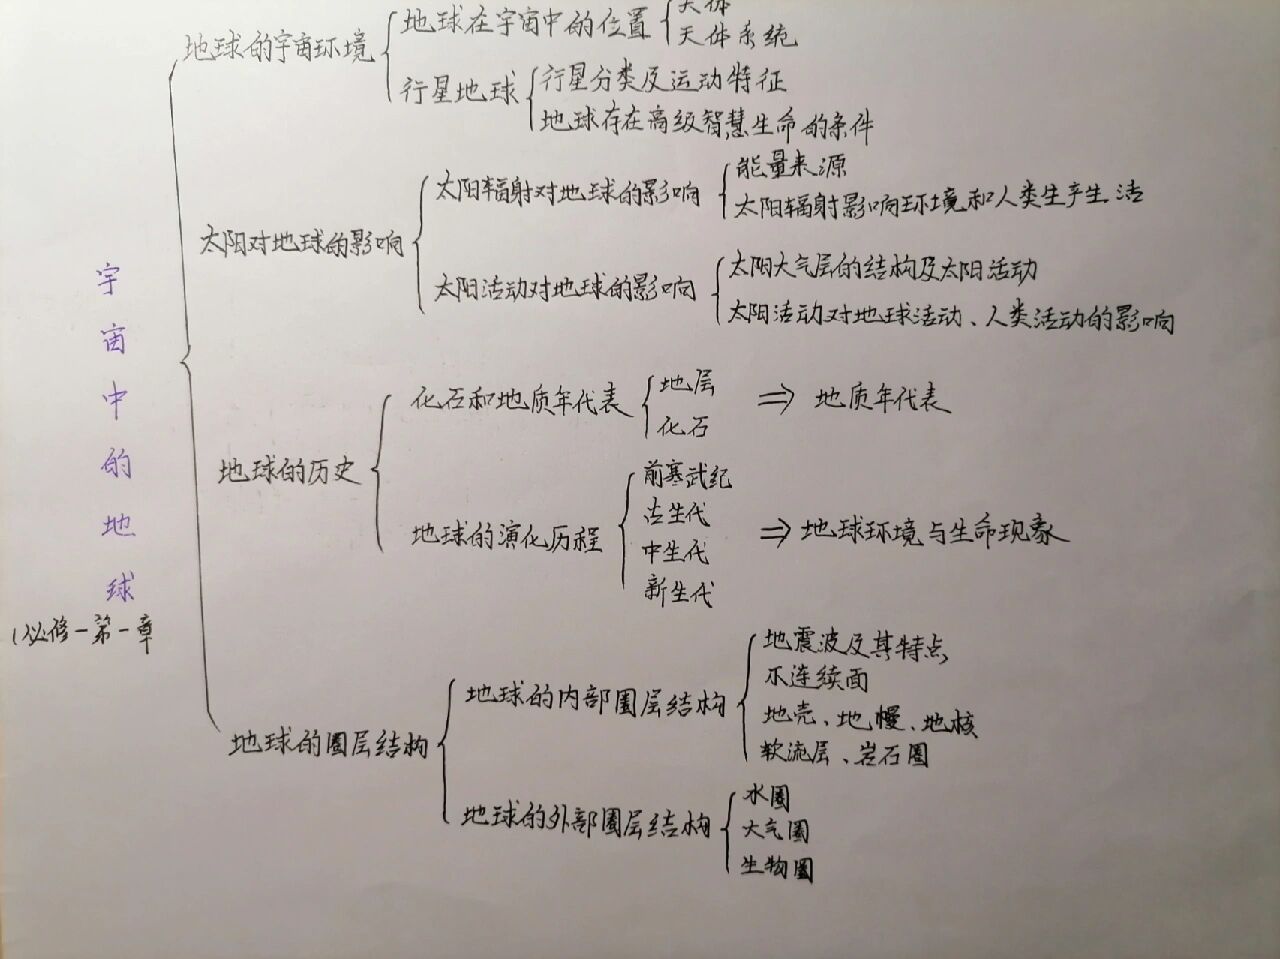 天体
地球的宇宙环境
地球在宇宙中的位置
天体系统
行星地球
行星分类及运动特征
地球存在高级智慧生命的条件
太阳对地球的影响
太阳辐射对地球的影响
能量来源
太阳辐射影响环境和人类生产生活
太阳活动对地球的影响
太阳大气层的结构及太阳活动
太阳活动对地球活动、人类活动的影响
宇宙中的地球
(必修一第一章
地球的历史
化石和地质年代表
地层
化石
⇒ 地质年代表
地球的演化历程
前寒武纪
古生代
中生代
新生代
⇒ 地球环境与生命现象
地球的圈层结构
地球的内部圈层结构
地震波及其特点
不连续面
地壳、地幔、地核
软流层、岩石圈
地球的外部圈层结构
水圈
大气圈
生物圈